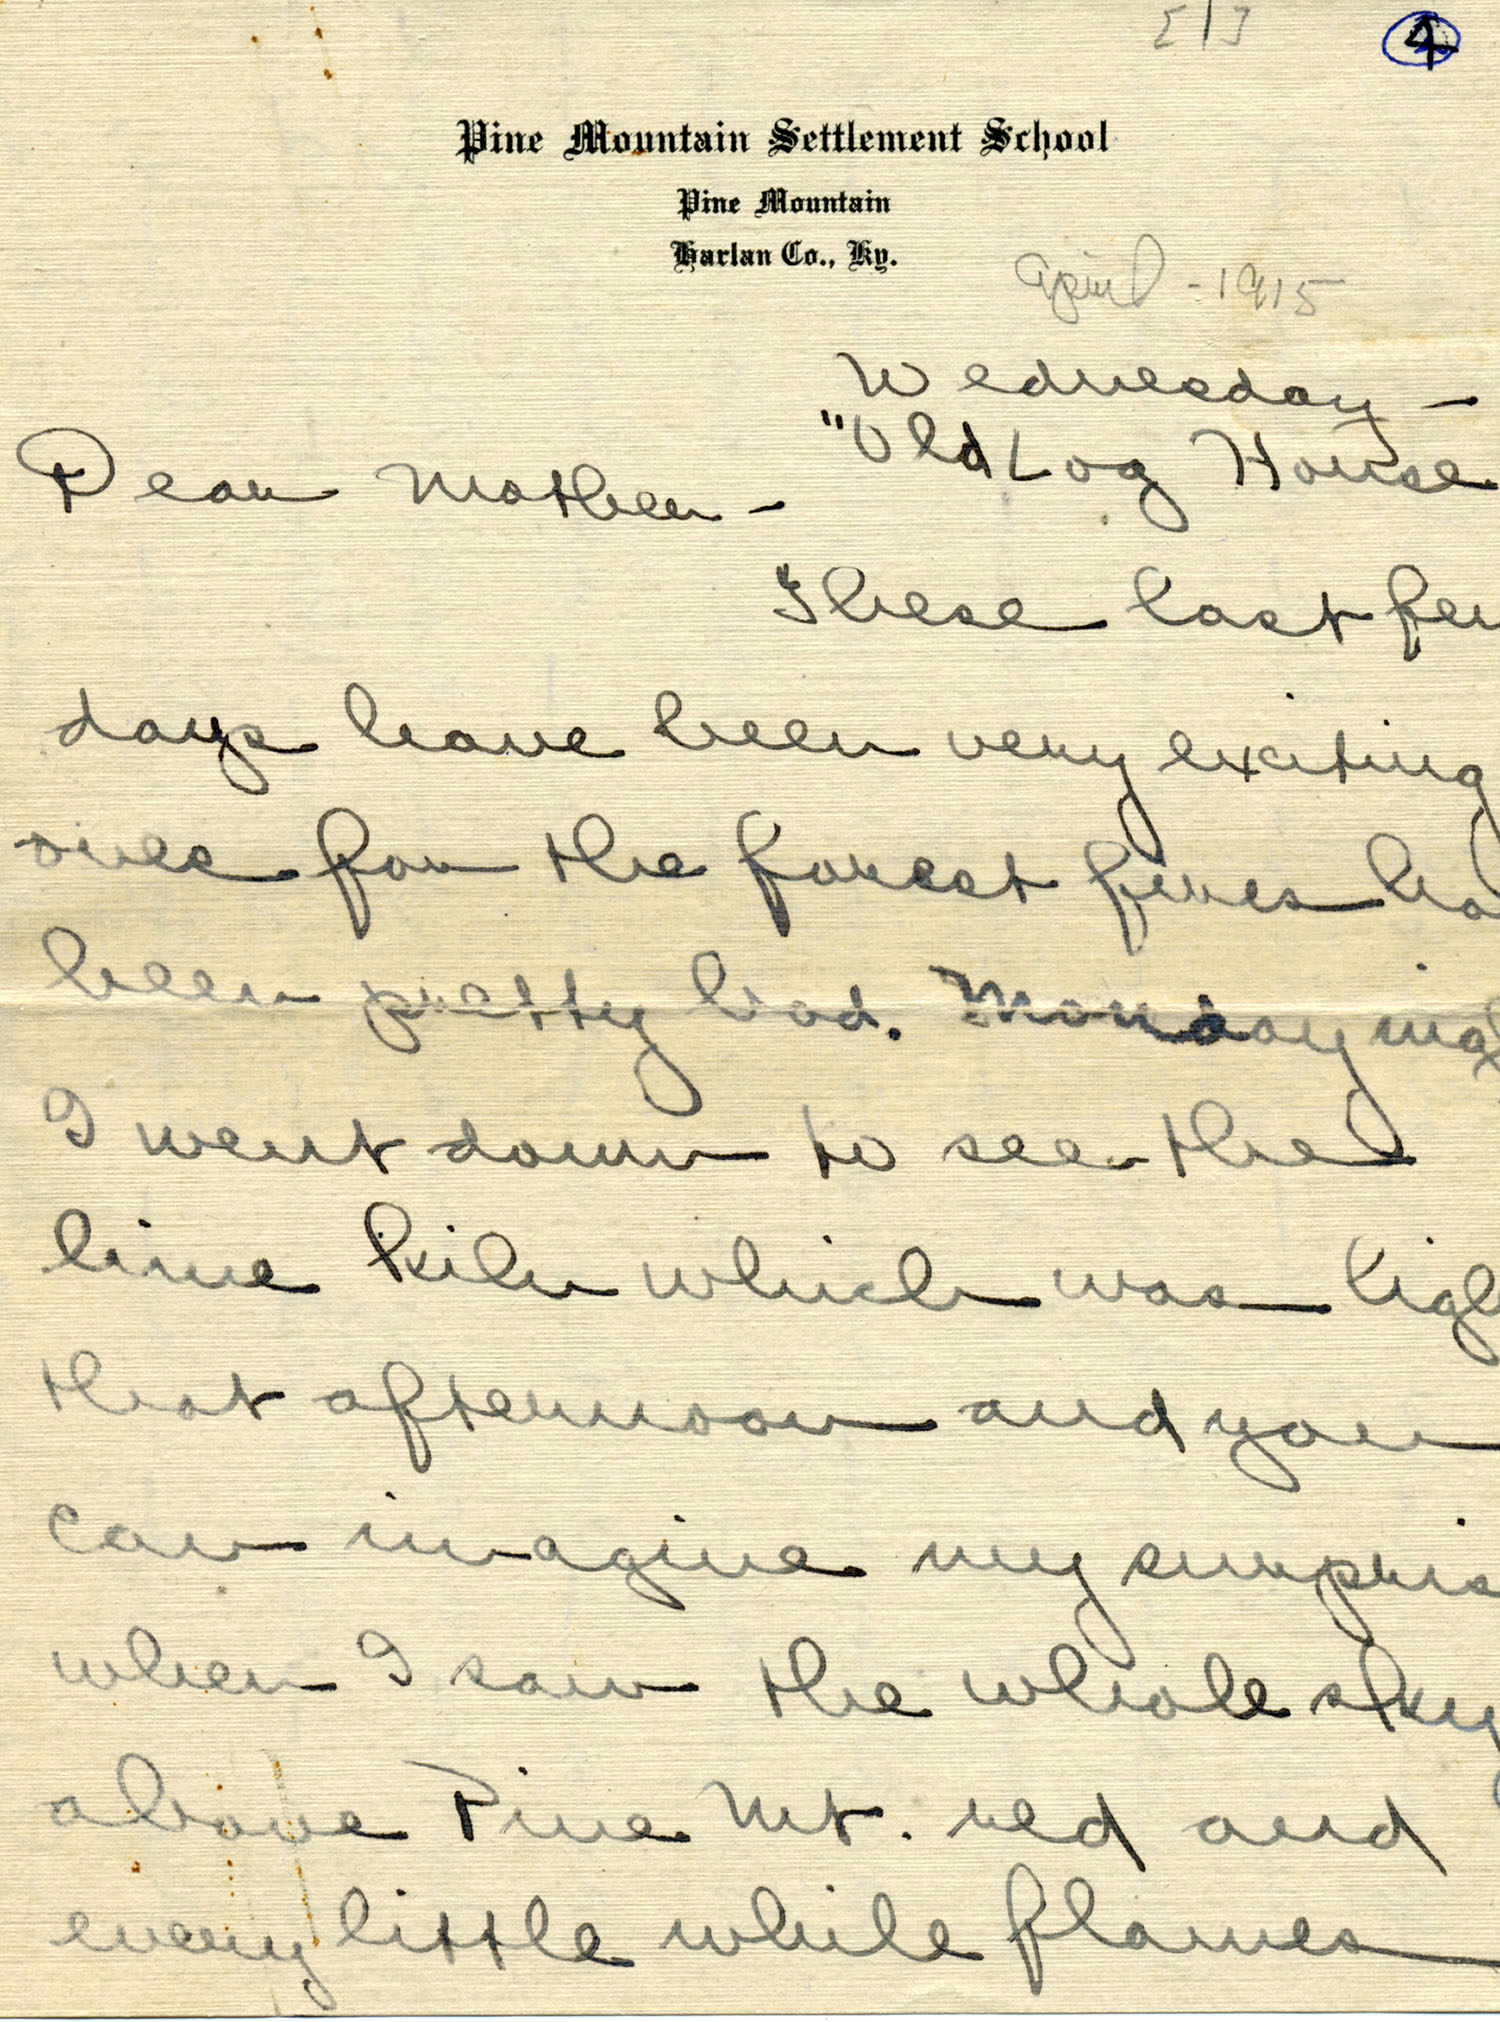 4
Pine Mountain Settlement School
Pine Mountain
Harlan Co., Ky.
April - 1915
Wednesday -
"Old Log House
Dear Mother -
These last few
days have been very exciting
ones for the forest fires ha
been pretty bad. Monday
I went down to see the
lime kiln which was ligh
that afternoon and you
can imagine my surpris
when I saw the whole sky
above Pine Mt. red and
every little while flames